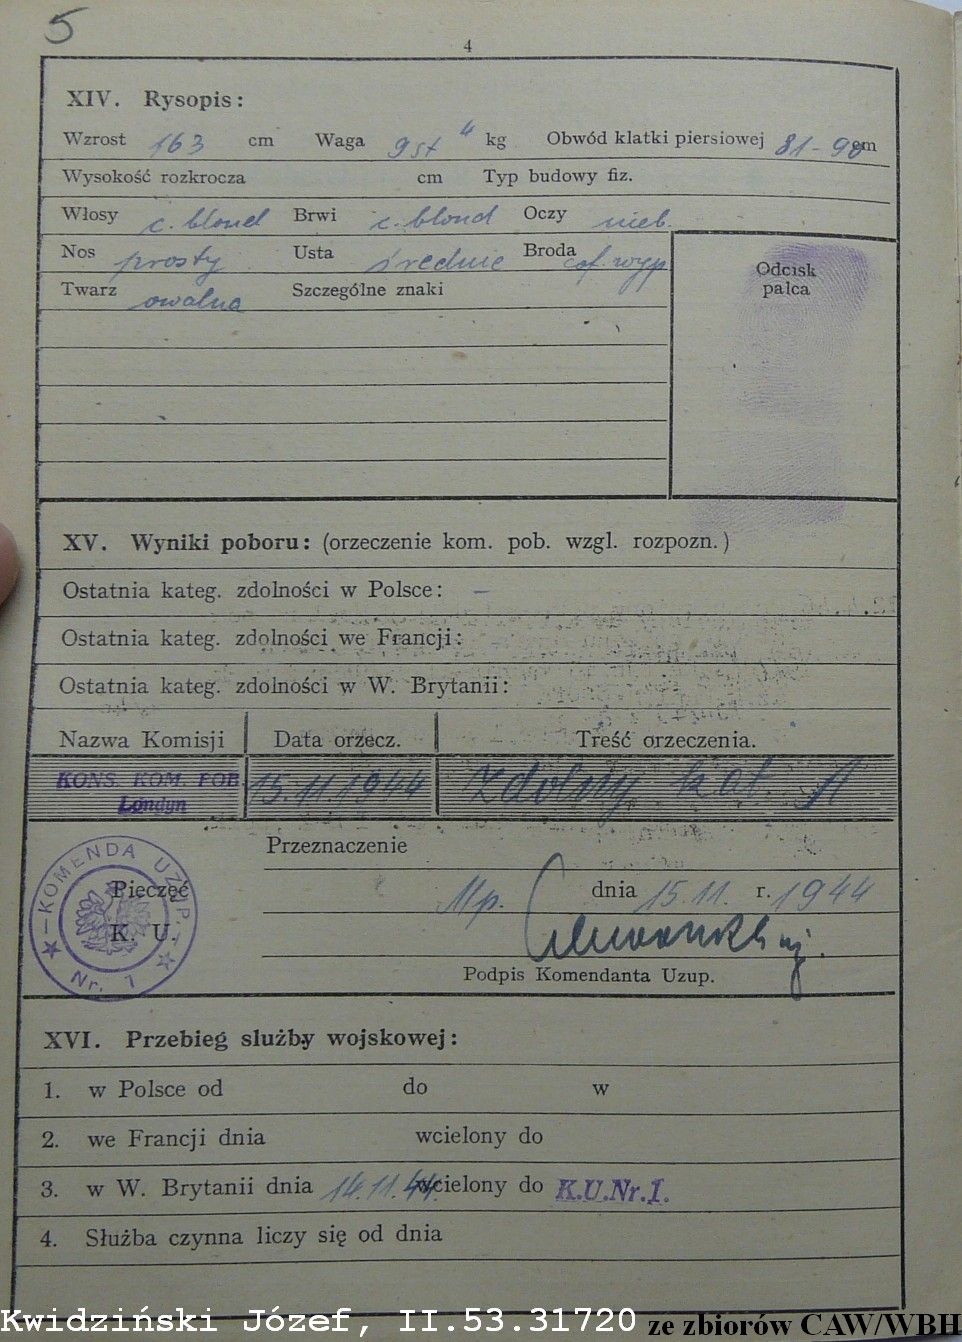 5
4
XIV. Rysopis:
Wzrost 163 cm Waga 9 st 4 kg Obwód klatki piersiowej 81-90 cm
Wysokość rozkrocza cm Typ budowy fiz.
Włosy c. blond Brwi c. blond Oczy nieb.
Nos prosty Usta średnie Broda cof. wyp
Twarz owalna Szczególne znaki
Odcisk
palca
XV. Wyniki poboru: (orzeczenie kom. pob. wzgl. rozpozn.)
Ostatnia kateg. zdolności w Polsce: -
Ostatnia kateg. zdolności we Francji:
Ostatnia kateg. zdolności w W. Brytanii:
Nazwa Komisji Data orzecz. Treść orzeczenia.
KONS. KOM. POB. 15.11.1944 Zdolny kat. A
Londyn
Przeznaczenie
KOMENDA UZUP. Nr. 1
Pieczęć Mp. dnia 15.11. r. 1944
K. U.
Podpis Komendanta Uzup.
XVI. Przebieg służby wojskowej:
1. w Polsce od do w
2. we Francji dnia wcielony do
3. w W. Brytanii dnia 14.11.44. wcielony do K.U.Nr.I.
4. Służba czynna liczy się od dnia
Kwidziński Józef, II.53.31720 ze zbiorów CAW/WBH